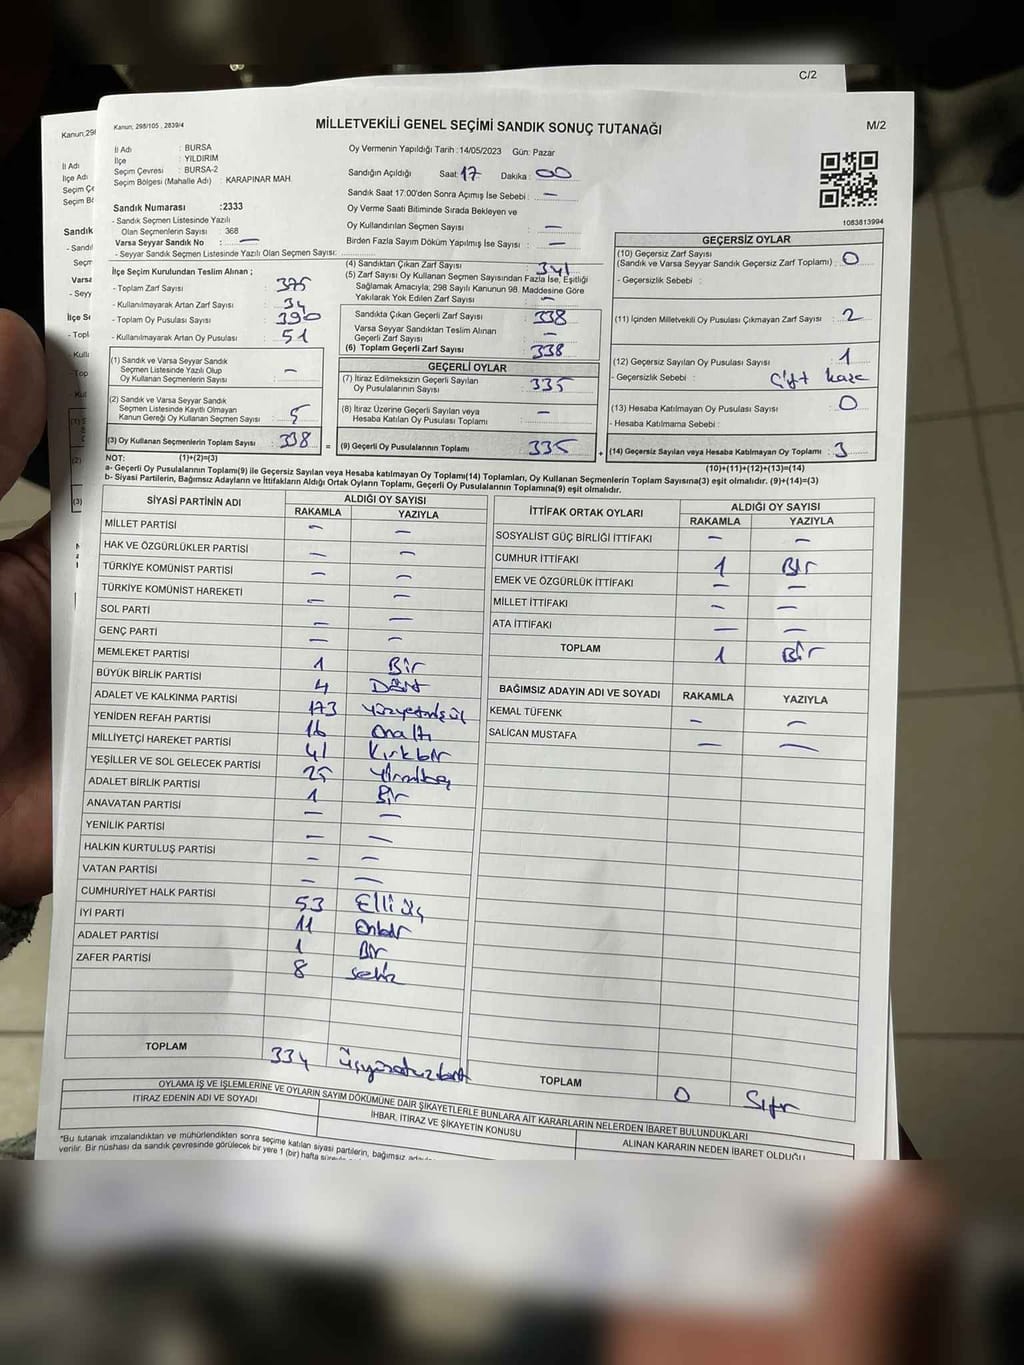 C/2
Kanun; 298/105 , 2839/4
MİLLETVEKİLİ GENEL SEÇİMİ SANDIK SONUÇ TUTANAĞI
M/2
İl Adı : BURSA
İlçe : YILDIRIM
Seçim Çevresi : BURSA-2
Seçim Bölgesi (Mahalle Adı) : KARAPINAR MAH.
Sandık Numarası :2333
- Sandık Seçmen Listesinde Yazılı
Olan Seçmenlerin Sayısı : 368
Varsa Seyyar Sandık No : —
- Seyyar Sandık Seçmen Listesinde Yazılı Olan Seçmen Sayısı:
İlçe Seçim Kurulundan Teslim Alınan ;
- Toplam Zarf Sayısı : 375
- Kullanılmayarak Artan Zarf Sayısı : 34
- Toplam Oy Pusulası Sayısı : 390
- Kullanılmayarak Artan Oy Pusulası : 51
(1) Sandık ve Varsa Seyyar Sandık
Seçmen Listesinde Yazılı Olup
Oy Kullanan Seçmenlerin Sayısı : —
(2) Sandık ve Varsa Seyyar Sandık
Seçmen Listesinde Kayıtlı Olmayan
Kanun Gereği Oy Kullanan Seçmen Sayısı : 5
(3) Oy Kullanan Seçmenlerin Toplam Sayısı : 338 =
Oy Vermenin Yapıldığı Tarih :14/05/2023 Gün: Pazar
Sandığın Açıldığı Saat: 17 Dakika : 00
Sandık Saat 17:00'den Sonra Açımış İse Sebebi : —
Oy Verme Saati Bitiminde Sırada Bekleyen ve
Oy Kullandırılan Seçmen Sayısı : —
Birden Fazla Sayım Döküm Yapılmış İse Sayısı : —
(4) Sandıktan Çıkan Zarf Sayısı : 341
(5) Zarf Sayısı Oy Kullanan Seçmen Sayısından Fazla İse, Eşitliği
Sağlamak Amacıyla; 298 Sayılı Kanunun 98. Maddesine Göre
Yakılarak Yok Edilen Zarf Sayısı : —
Sandıkta Çıkan Geçerli Zarf Sayısı : 338
Varsa Seyyar Sandıktan Teslim Alınan
Geçerli Zarf Sayısı : —
(6) Toplam Geçerli Zarf Sayısı : 338
GEÇERLİ OYLAR
(7) İtiraz Edilmeksizin Geçerli Sayılan
Oy Pusulalarının Sayısı : 335
(8) İtiraz Üzerine Geçerli Sayılan veya
Hesaba Katılan Oy Pusulası Toplamı : —
(9) Geçerli Oy Pusulalarının Toplamı : 335 +
1083813994
GEÇERSİZ OYLAR
(10) Geçersiz Zarf Sayısı
(Sandık ve Varsa Seyyar Sandık Geçersiz Zarf Toplamı) : 0
- Geçersizlik Sebebi :
(11) İçinden Milletvekili Oy Pusulası Çıkmayan Zarf Sayısı : 2
(12) Geçersiz Sayılan Oy Pusulası Sayısı : 1
- Geçersizlik Sebebi : Çift kaze
(13) Hesaba Katılmayan Oy Pusulası Sayısı : 0
- Hesaba Katılmama Sebebi :
(14) Geçersiz Sayılan veya Hesaba Katılmayan Oy Toplamı : 3
NOT: (1)+(2)=(3) (10)+(11)+(12)+(13)=(14)
a- Geçerli Oy Pusulalarının Toplamı(9) ile Geçersiz Sayılan veya Hesaba katılmayan Oy Toplamı(14) Toplamları, Oy Kullanan Seçmenlerin Toplam Sayısına(3) eşit olmalıdır. (9)+(14)=(3)
b- Siyasi Partilerin, Bağımsız Adayların ve İttifakların Aldığı Ortak Oyların Toplamı, Geçerli Oy Pusulalarının Toplamına(9) eşit olmalıdır.
SİYASİ PARTİNİN ADI ALDIĞI OY SAYISI
RAKAMLA YAZIYLA
MİLLET PARTİSİ — —
HAK VE ÖZGÜRLÜKLER PARTİSİ — —
TÜRKİYE KOMÜNİST PARTİSİ — —
TÜRKİYE KOMÜNİST HAREKETİ — —
SOL PARTİ — —
GENÇ PARTİ — —
MEMLEKET PARTİSİ 1 Bir
BÜYÜK BİRLİK PARTİSİ 4 Dört
ADALET VE KALKINMA PARTİSİ 173 Yüzyetmişüç
YENİDEN REFAH PARTİSİ 16 Onaltı
MİLLİYETÇİ HAREKET PARTİSİ 41 Kırkbir
YEŞİLLER VE SOL GELECEK PARTİSİ 25 Yirmibeş
ADALET BİRLİK PARTİSİ 1 Bir
ANAVATAN PARTİSİ — —
YENİLİK PARTİSİ — —
HALKIN KURTULUŞ PARTİSİ — —
VATAN PARTİSİ — —
CUMHURİYET HALK PARTİSİ 53 Elli üç
İYİ PARTİ 11 Onbir
ADALET PARTİSİ 1 Bir
ZAFER PARTİSİ 8 sekiz
TOPLAM 334 üçyüzotuzdört
İTTİFAK ORTAK OYLARI ALDIĞI OY SAYISI
RAKAMLA YAZIYLA
SOSYALİST GÜÇ BİRLİĞİ İTTİFAKI — —
CUMHUR İTTİFAKI 1 Bir
EMEK VE ÖZGÜRLÜK İTTİFAKI — —
MİLLET İTTİFAKI — —
ATA İTTİFAKI — —
TOPLAM 1 Bir
BAĞIMSIZ ADAYIN ADI VE SOYADI RAKAMLA YAZIYLA
KEMAL TÜFENK — —
SALİCAN MUSTAFA — —
TOPLAM 0 Sıfır
OYLAMA İŞ VE İŞLEMLERİNE VE OYLARIN SAYIM DÖKÜMÜNE DAİR ŞİKAYETLERLE BUNLARA AİT KARARLARIN NELERDEN İBARET BULUNDUKLARI
İTİRAZ EDENİN ADI VE SOYADI İHBAR, İTİRAZ VE ŞİKAYETİN KONUSU ALINAN KARARIN NEDEN İBARET OLDUĞU
*Bu tutanak imzalandıktan ve mühürlendikten sonra seçime katılan siyasi partilerin, bağımsız
verilir. Bir nüshası da sandık çevresinde görülecek bir yere 1 (bir) hafta